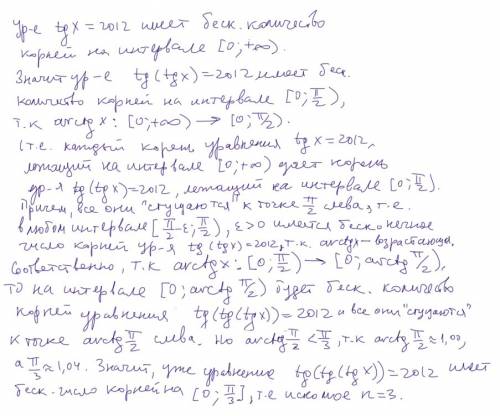 Ур-е tgx = 2012 имеет беск. количество
корней на интервале [0; +∞).
Значит ур-е tg(tgx) = 2012 имеет бес.
количество корней на интервале [0; π/2),
т.к arctgx: [0; +∞) → [0; π/2).
(т.е. каждый корень уравнения tgx = 2012,
лежащий на интервале [0; +∞) дает корень
ур-я tg(tgx) = 2012, лежащий на интервале [0; π/2).
Причем, все они "сгущаются" к точке π/2 слева, т.е.
в любом интервале [π/2 - ε; π/2), ε > 0 имеется бесконечное
число корней ур-я tg(tgx) = 2012, т.к. arctgx – возрастающа.
Соответственно, т.к arctgx: [0; π/2) → [0; arctg π/2),
то на интервале [0; arctg π/2) будет беск. количество
корней уравнения tg(tg(tgx)) = 2012 и все они "сгущаются"
к точке arctg π/2 слева. Но arctg π/2 < π/3, т.к arctg π/2 ≈ 1,00,
а π/3 ≈ 1,04. Значит, уже уравнение tg(tg(tgx)) = 2012 имеет
беск. число корней на [0; π/3], т.е искомое n = 3.